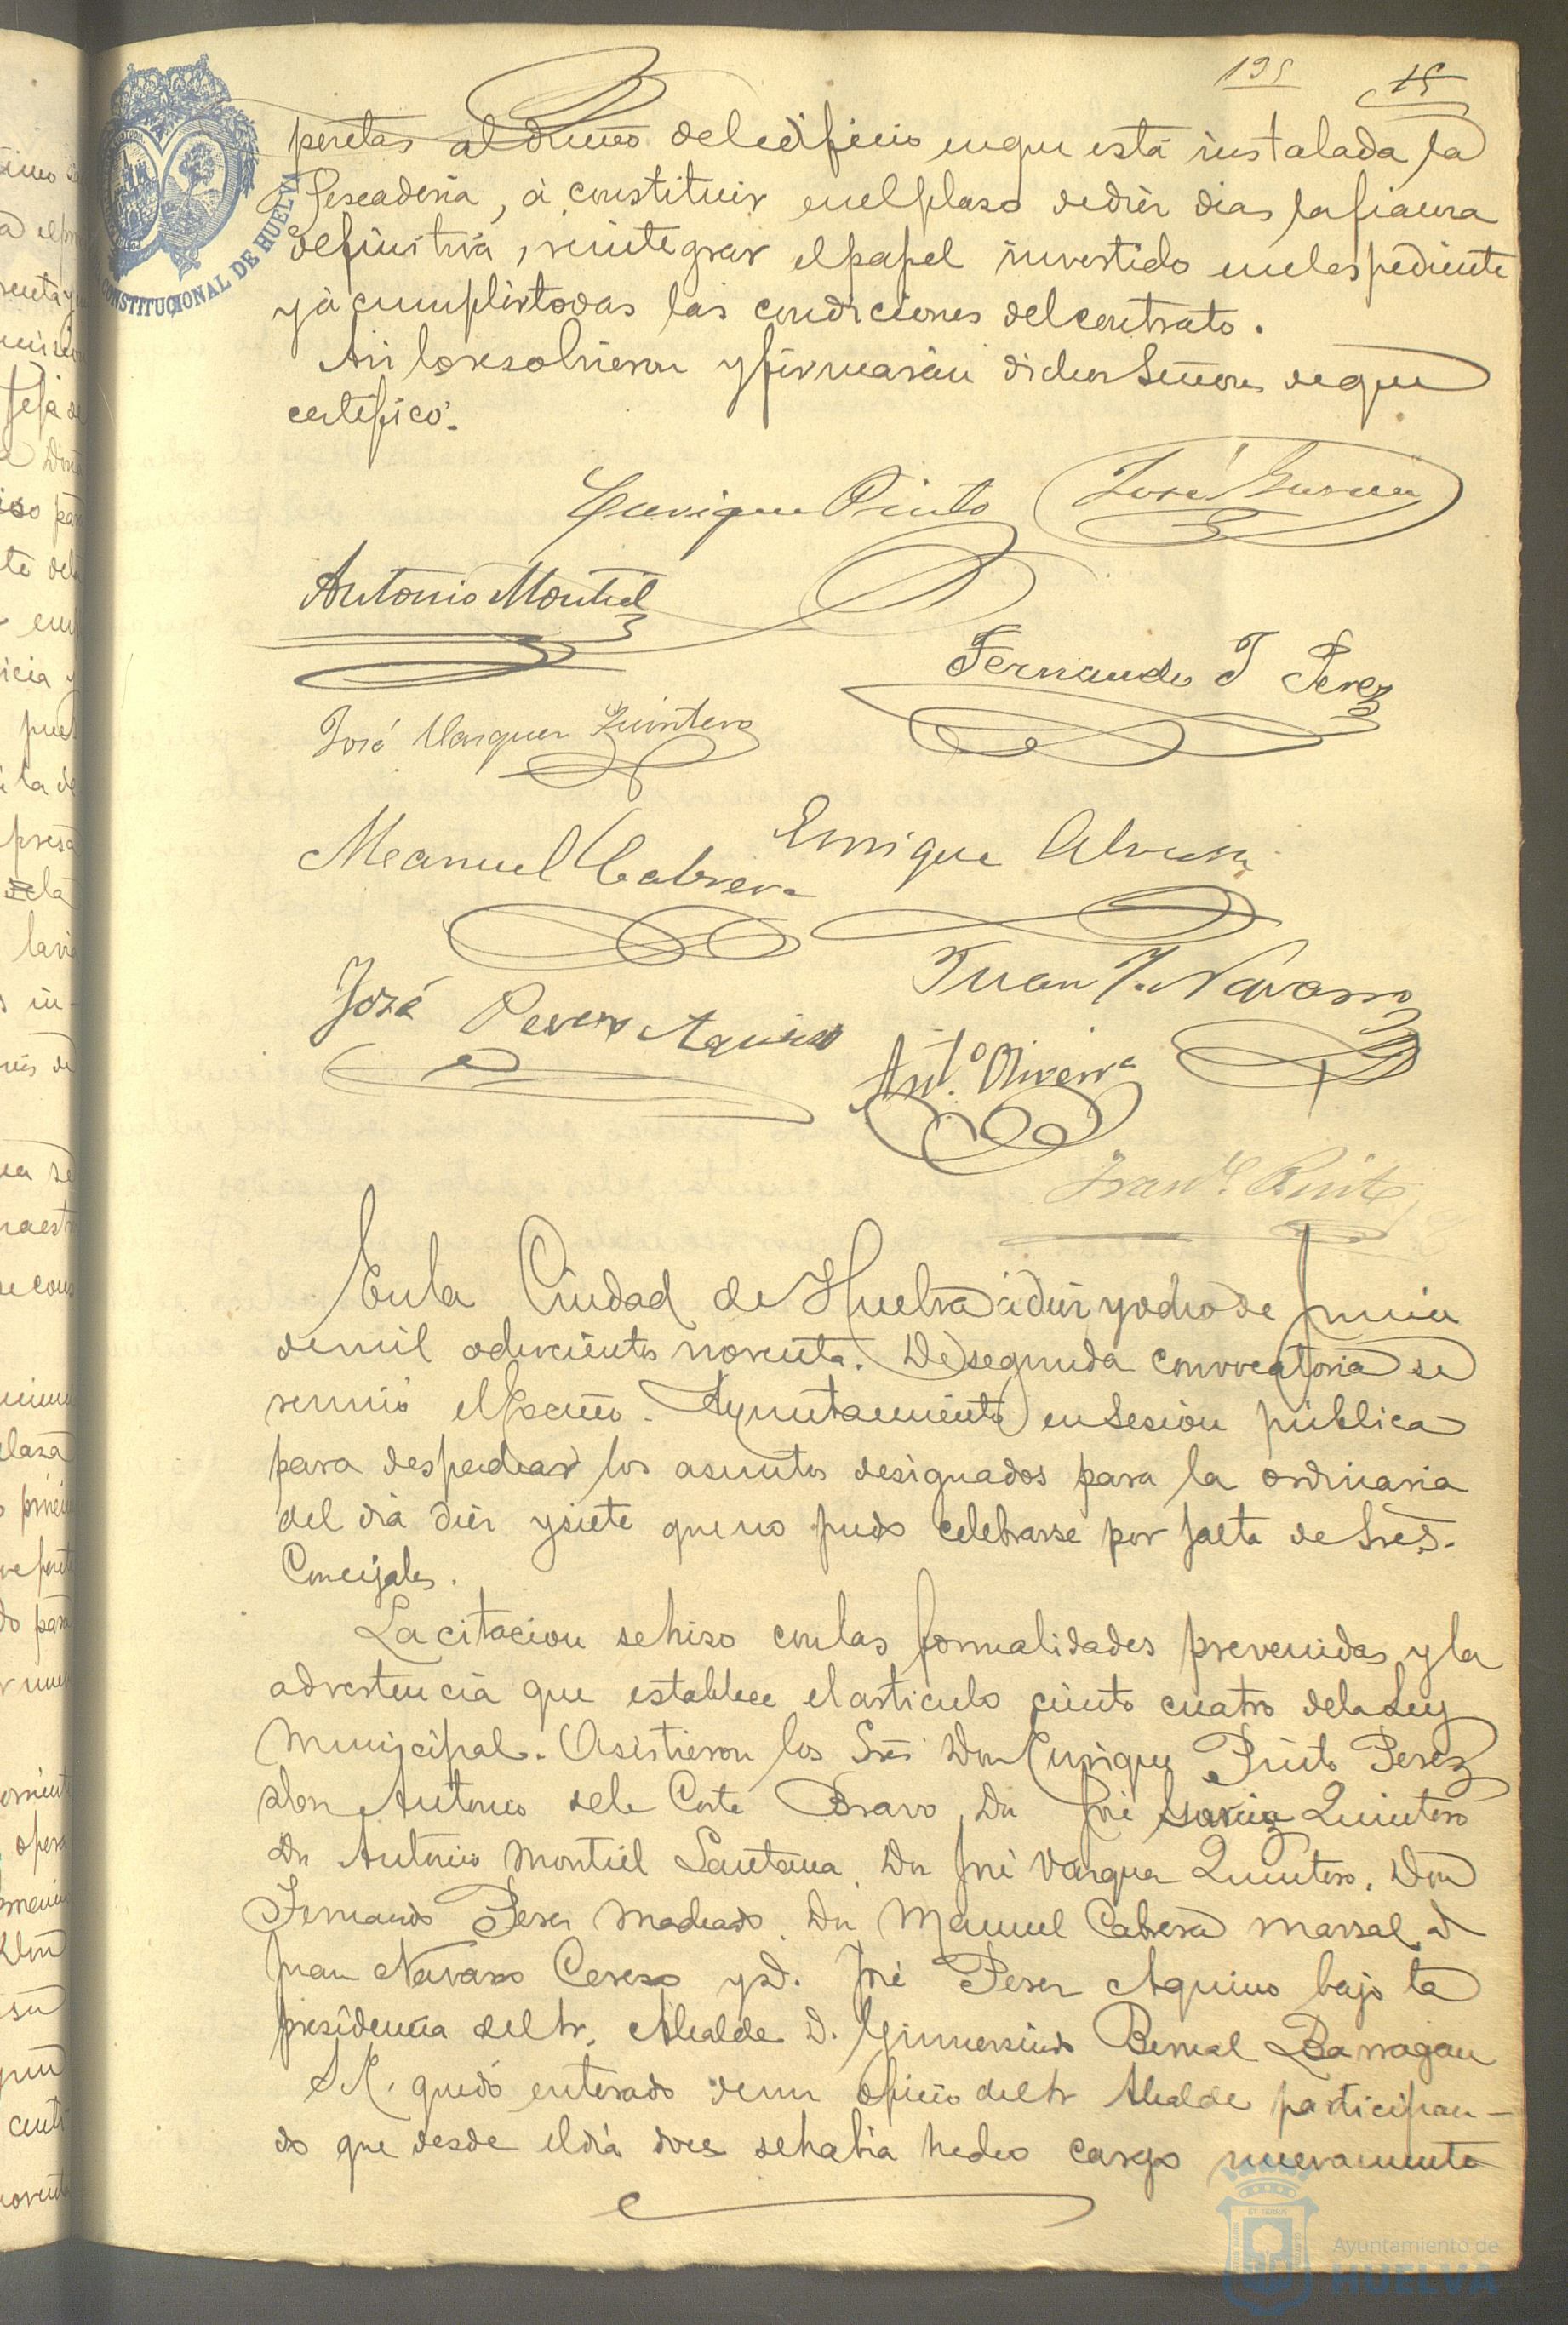 195 15
pesetas al dueño del edificio en que está instalada la
Pescadería, á constituir en el plaso de diez dias la fianza
definitiva, reintegrar el papel invertido en el espediente
y á cumplir todas las condiciones del contrato.
Asi lo resolvieron y firmarán dichos Señores de que
certifico.
Enrique Pinto José Garcia
Antonio Montiel
Fernando T Perez
José Vazquez Quintero
Manuel Cabrera Enrique
José Perez Aquino Juan J. Navarro
Ant.º Oliveira
Fran.co Pinto
En la Ciudad de Huelva á diez y ocho de Junio
de mil ochocientos noventa. De segunda convocatoria se
reunió el Excmo. Ayuntamiento en sesion pública
para despachar los asuntos designados para la ordinaria
del dia diez y siete que no pudo celebrarse por falta de Sres.
Concejales.
La citacion se hizo con las formalidades prevenidas y la
advertencia que establece el articulo ciento cuatro de la Ley
Municipal. Asistieron los Sres Don Enrique Pinto Perez
don Antonio de la Corte Bravo, Dn José Garcia Quintero
Dn Antonio Montiel Santana, Dn José Vazquez Quintero, Don
Fernando Perez Machado, Dn Manuel Cabrera Marsal, d
Juan Navarro Cereso y D. José Perez Aquino bajo la
presidencia del Sr. Alcalde D. Gumersindo Bernal Barragan
S.E. quedó enterado de un oficio del Sr Alcalde participan-
do que desde el dia doce se habia hecho cargo nuevamente
CONSTITUCIONAL DE HUELVA
Ayuntamiento de
HUELVA